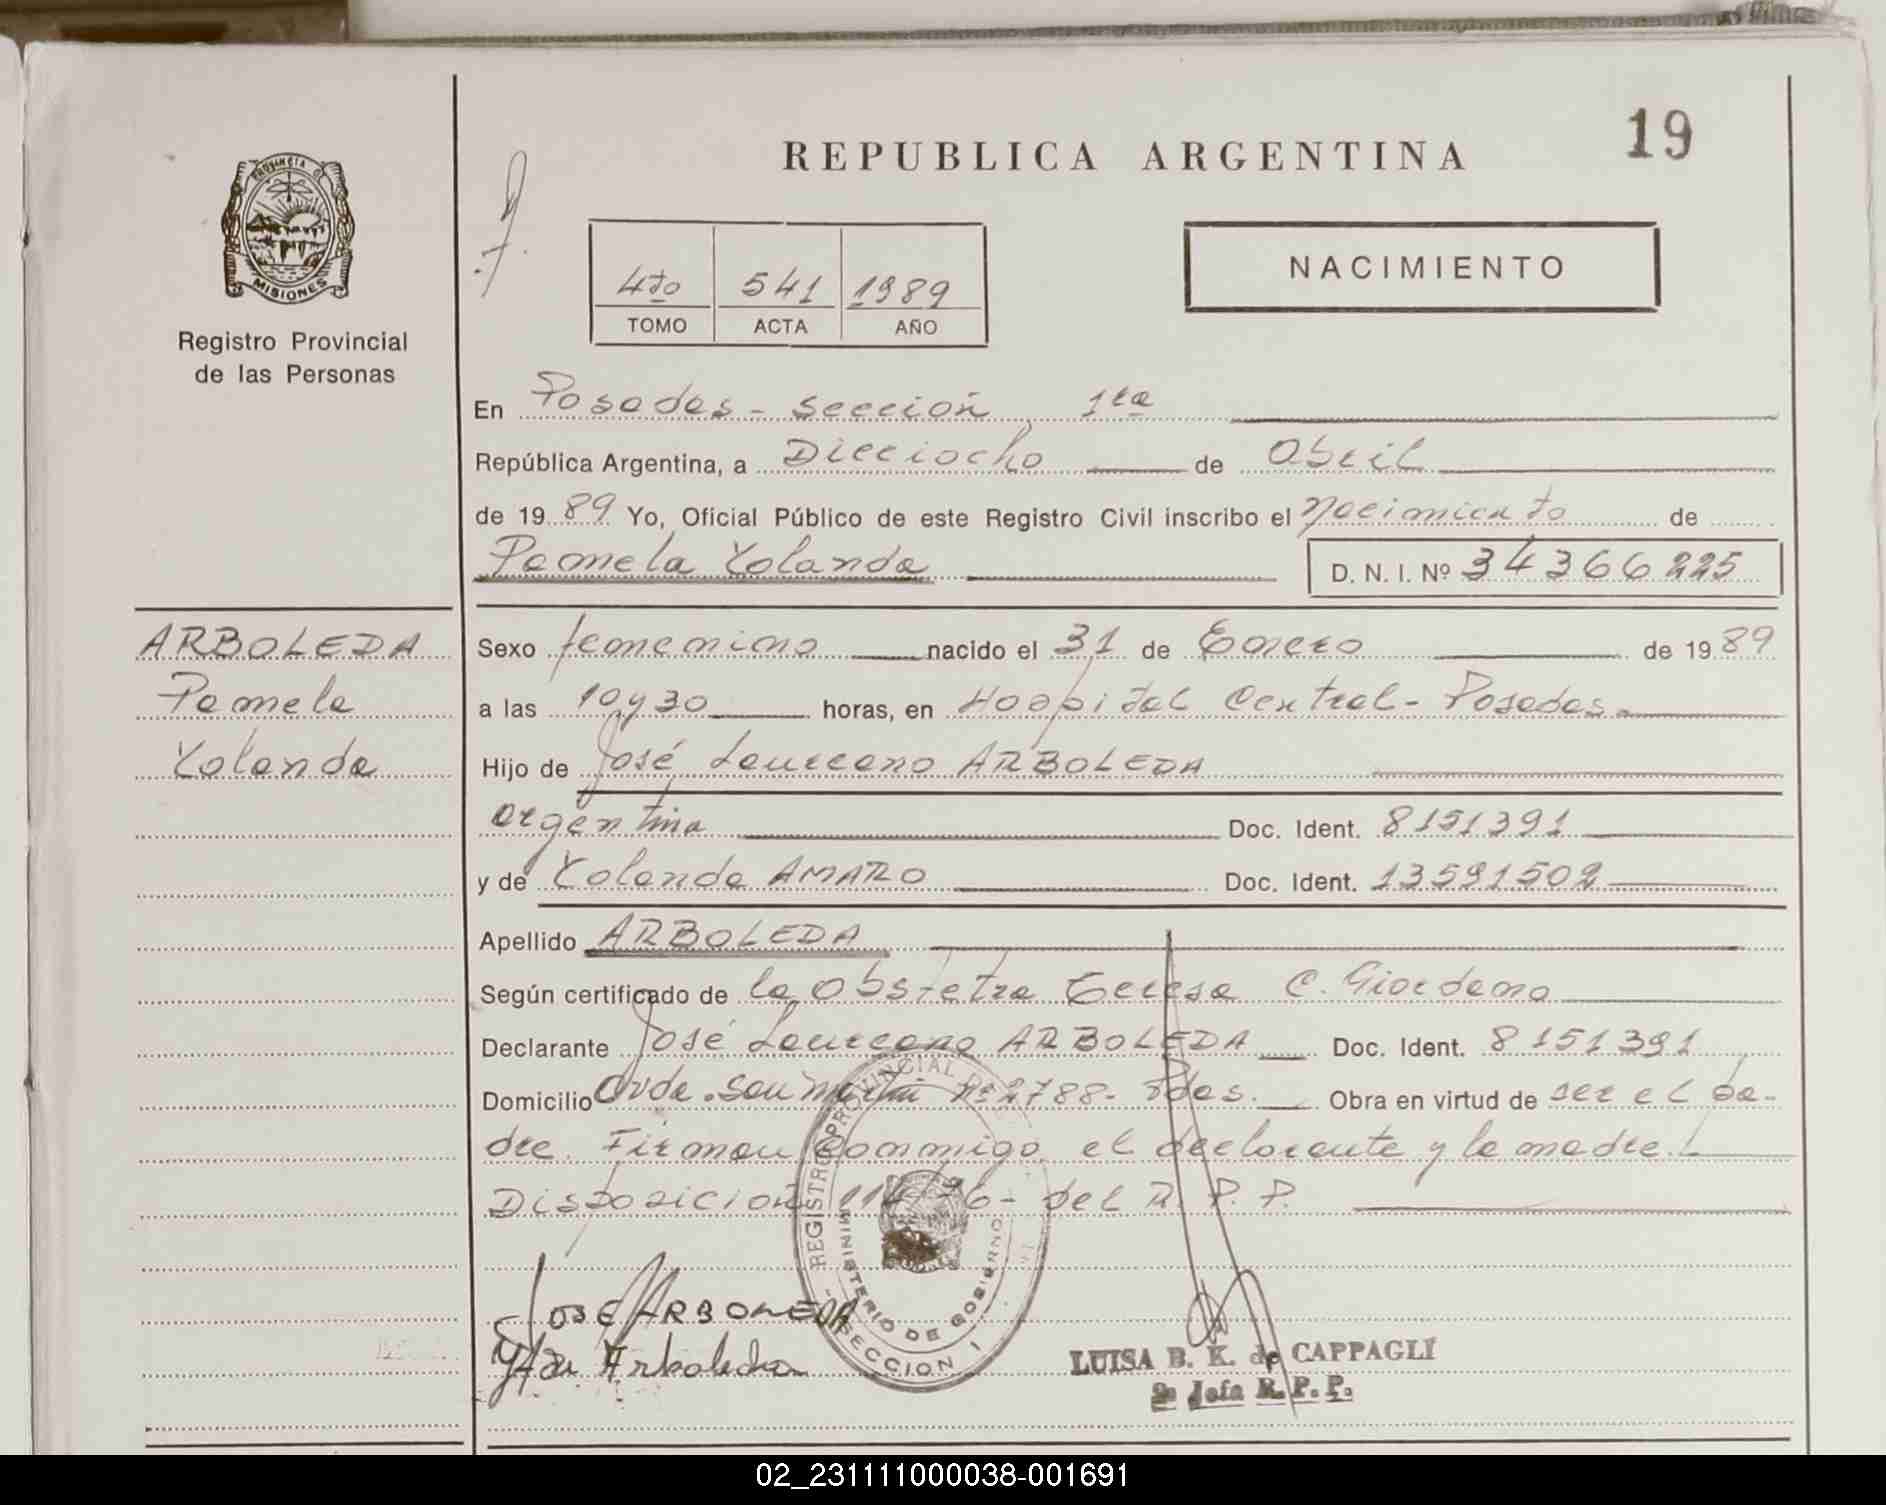 REPUBLICA ARGENTINA
19
PROVINCIA
MISIONES
Registro Provincial
de las Personas
4to 541 1989
TOMO ACTA AÑO
NACIMIENTO
En Posadas - Sección 1ra
República Argentina, a Dieciocho de Abril
de 1989 Yo, Oficial Público de este Registro Civil inscribo el Nacimiento de
Pamela Yolanda
D. N. I. Nº 34366225
ARBOLEDA
Pamela
Yolanda
Sexo femenino nacido el 31 de Enero de 1989
a las 10 y 30 horas, en Hospital Central - Posadas.
Hijo de José Laureano ARBOLEDA
argentina Doc. Ident. 8151391
y de Yolanda AMARO Doc. Ident. 13591502
Apellido ARBOLEDA
Según certificado de la Obstetra Teresa C. Giordano
Declarante José Laureano ARBOLEDA Doc. Ident. 8151391
Domicilio Avda. San Martin Nº 2788 - Pdas. Obra en virtud de ser el pa-
dre. Firman conmigo el declarante y la madre.
Disposición 114/76 - del R. P. P.
REGISTRO PROVINCIAL
MINISTERIO DE GOBIERNO
SECCION 1
JOSE ARBOLEDA
Arboleda
LUISA B. K. de CAPPAGLI
2a Jefa R. P. P.
02_231111000038-001691